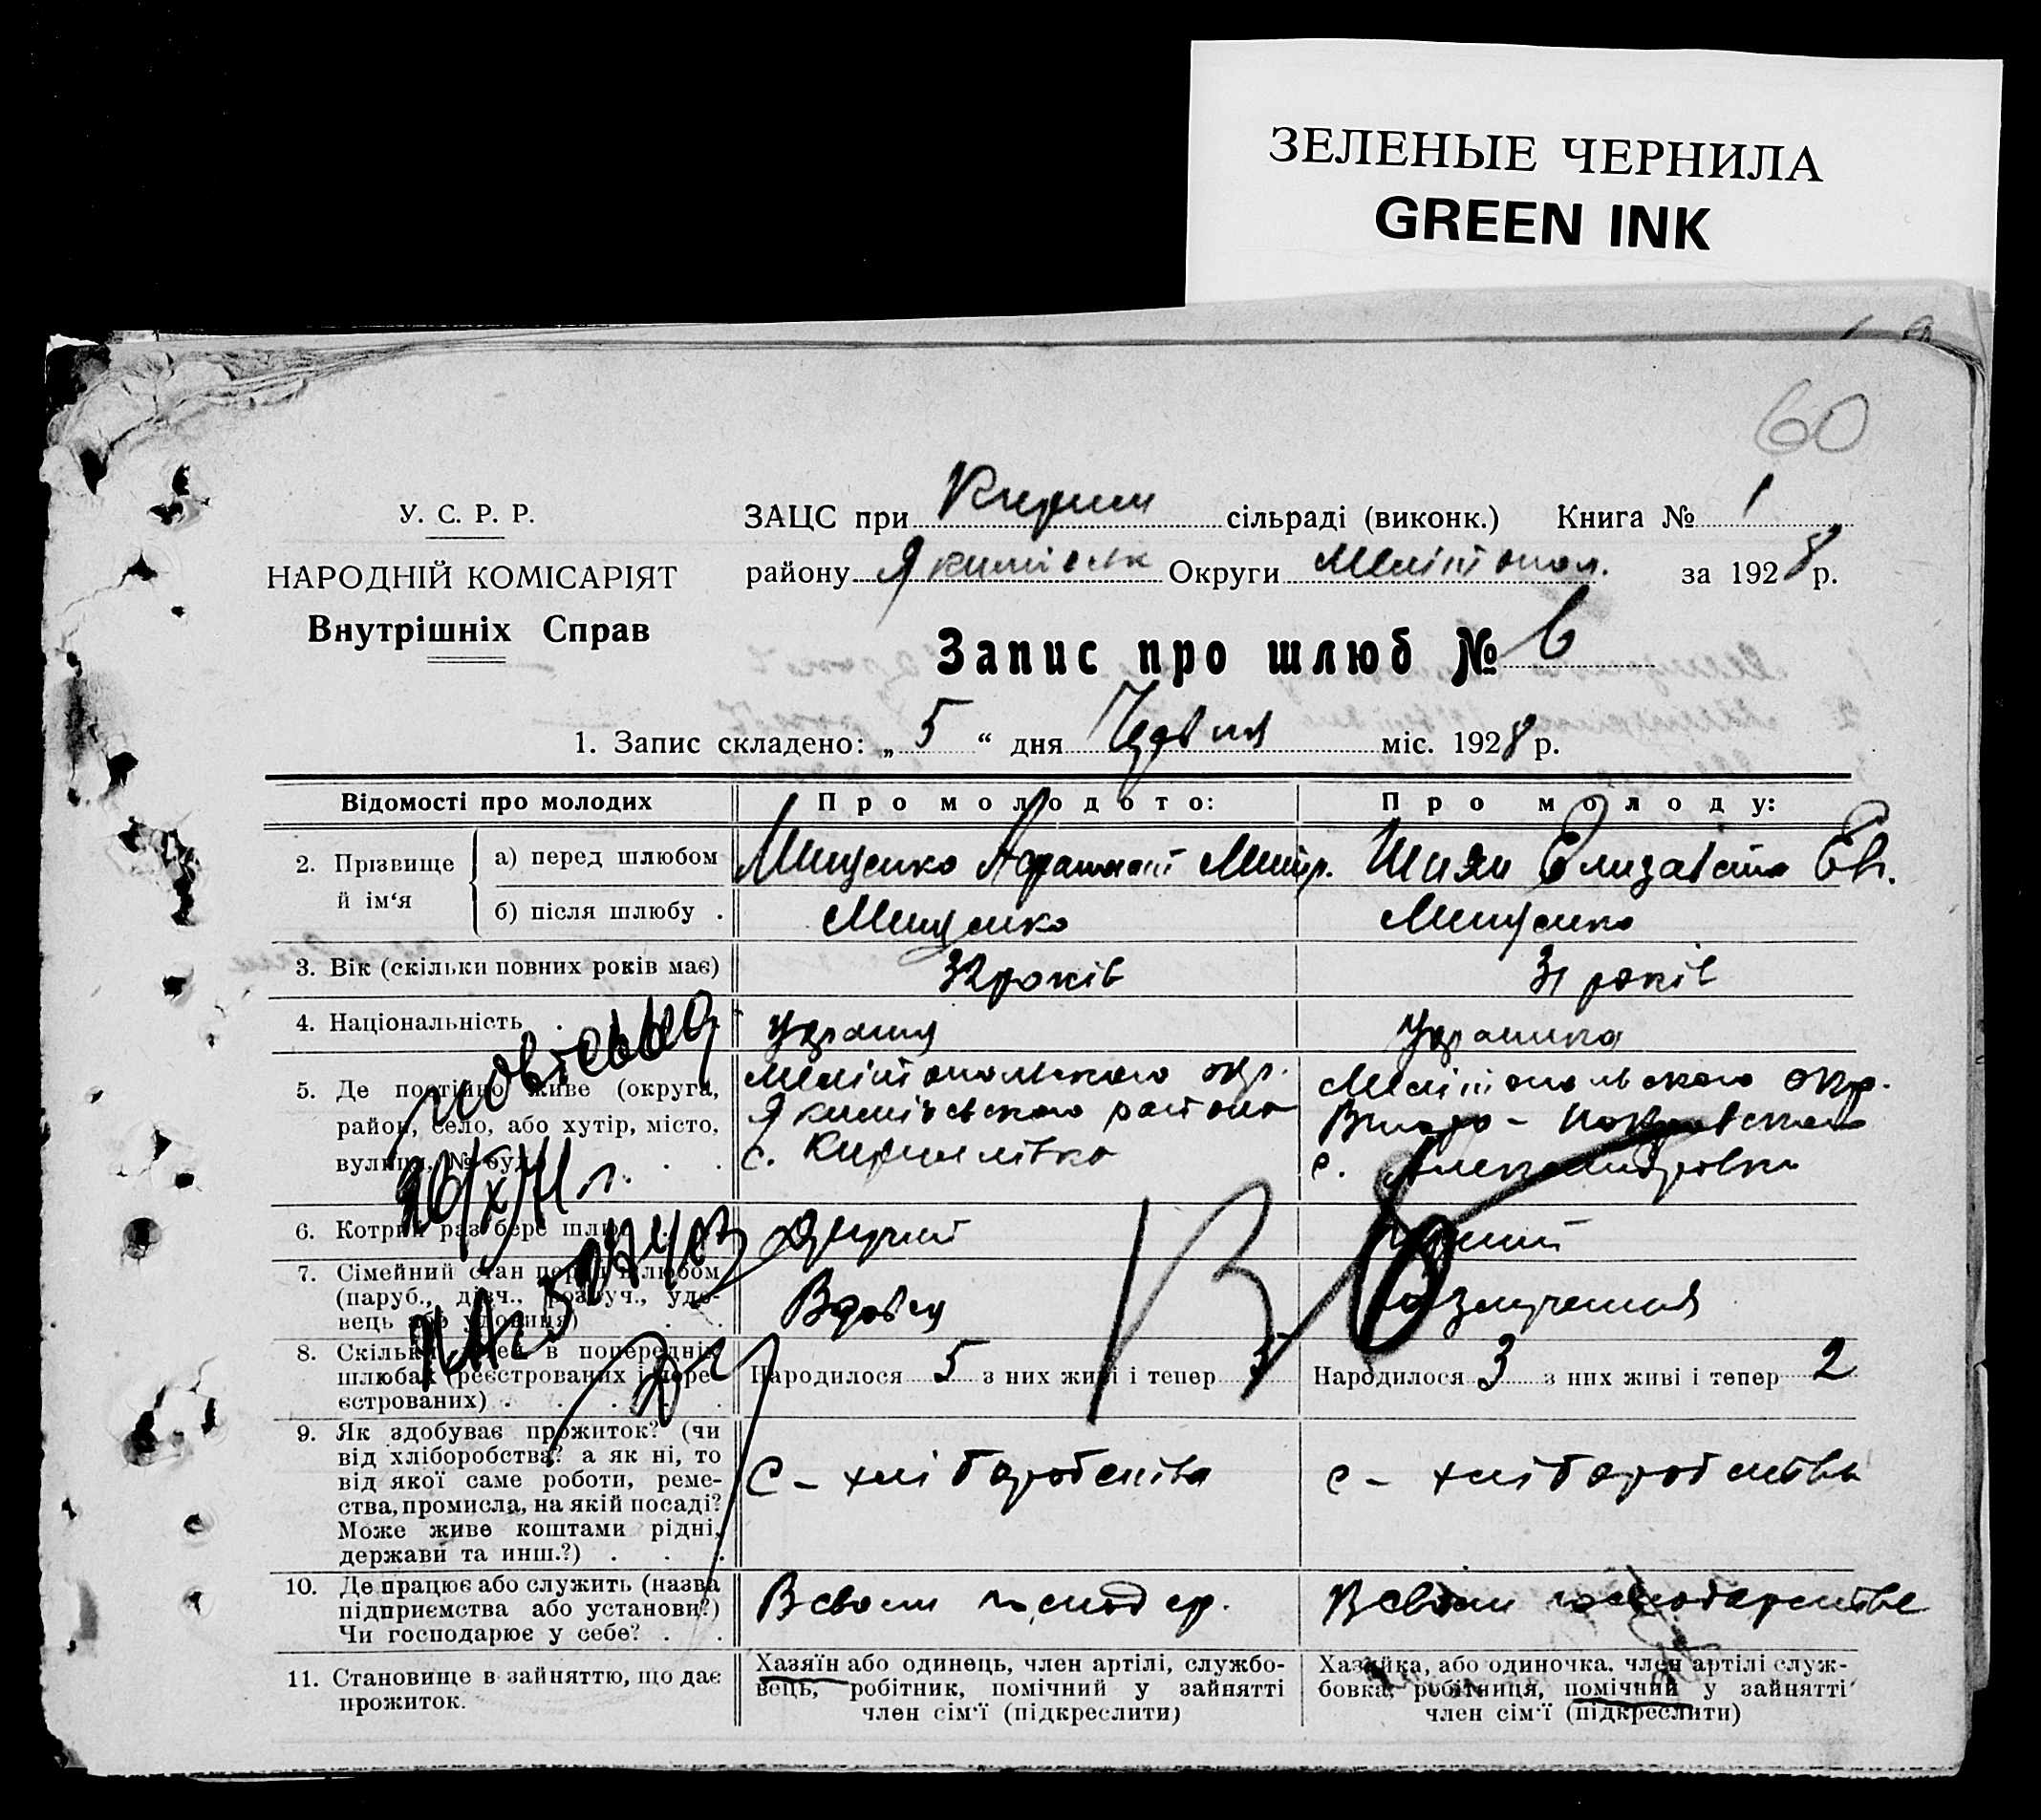 ЗЕЛЕНЫЕ ЧЕРНИЛА
GREEN INK
60
У. С. Р. Р.
НАРОДНІЙ КОМІСАРІЯТ
Внутрішніх Справ
ЗАЦС при Кирил сільраді (виконк.) Книга № 1
району Якимівськ Округи Мелітопол. за 1928 р.
Запис про шлюб № 6
1. Запис складено: „ 5 “ дня міс. 1928 р.
Відомості про молодих
Про молодого:
Про молоду:
2. Прізвище й ім‘я
а) перед шлюбом
Мищенко Митр.
Шиян Елизавета Ев.
б) після шлюбу .
Мищенко
Мищенко
3. Вік (скільки повних років має)
32 років
31 років
4. Національність .
україн
українка
5. Де постійно живе (округа,
район, село, або хутір, місто,
вулиця, № буд.
Мелітопольского окр.
Якимівського района
с. Кирилівка
Мелітопольского окр.
с. Александровка
26/X/71 г.
6. Котрий раз бере шлюб
Другий
7. Сімейний стан перед шлюбом
(паруб., дівч., розлуч., удо-
вець або удовиця)
Вдовец
8. Скільки дітей в попередніх
шлюбах (реєстрованих і нере-
єстрованих) .
Народилося 5 з них живі і тепер 3
Народилося 3 з них живі і тепер 2
9. Як здобуває прожиток? (чи
від хліборобства? а як ні, то
від якої саме роботи, реме-
ства, промисла, на якій посаді?
Може живе коштами рідні,
держави та инш.?) .
С - хліборобства
с - хліборобства
10. Де працює або служить (назва
підприємства або установи?)
Чи господарює у себе? .
В своем господар.
В своем господарстве
11. Становище в зайняттю, що дає
прожиток.
Хазяїн або одинець, член артілі, службо-
вець, робітник, помічний у зайнятті
член сім‘ї (підкреслити)
Хазяйка, або одиночка, член артілі служ-
бовка, робітниця, помічний у зайнятті
член сім‘ї (підкреслити)